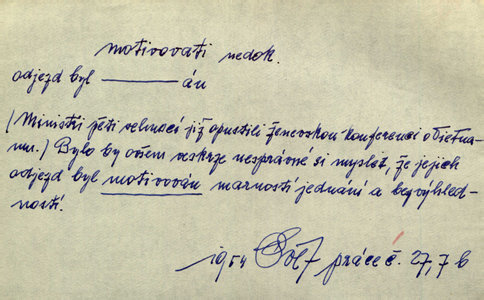 motivovati nedok.
odjezd byl ——— án
(Ministři pěti velmocí již opustili ženevskou konferenci o Vietna-
mu.) Bylo by ovšem veskrze nesprávné si myslet, že jejich
odjezd byl motivován marností jednání a bezvýhled-
ností.
1954 práce č. 27, 7 b